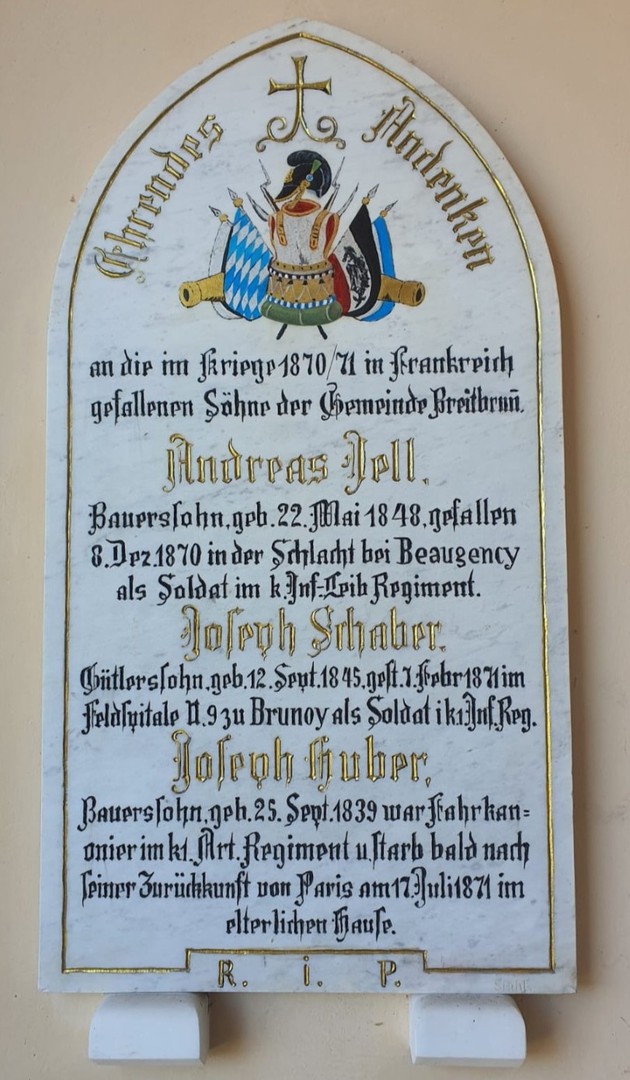 Ehrendes Andenken
an die im Kriege 1870/71 in Frankreich
gefallenen Söhne der Gemeinde Breitbrun̄.
Andreas Jell,
Bauerssohn, geb. 22. Mai 1848, gefallen
8. Dez. 1870 in der Schlacht bei Beaugency
als Soldat im k. Inf=Leib Regiment.
Joseph Schaber,
Gütlerssohn, geb. 12. Sept. 1845, gest. 7. Febr 1871 im
Feldspitale II. 9 zu Brunoy als Soldat i k 1. Inf. Reg.
Joseph Huber,
Bauerssohn, geb. 25. Sept. 1839 war Fahrkan=
onier im k 1. Art. Regiment u. starb bald nach
seiner Zurückkunft von Paris am 17. Juli 1871 im
elterlichen Hause.
R. i. P.